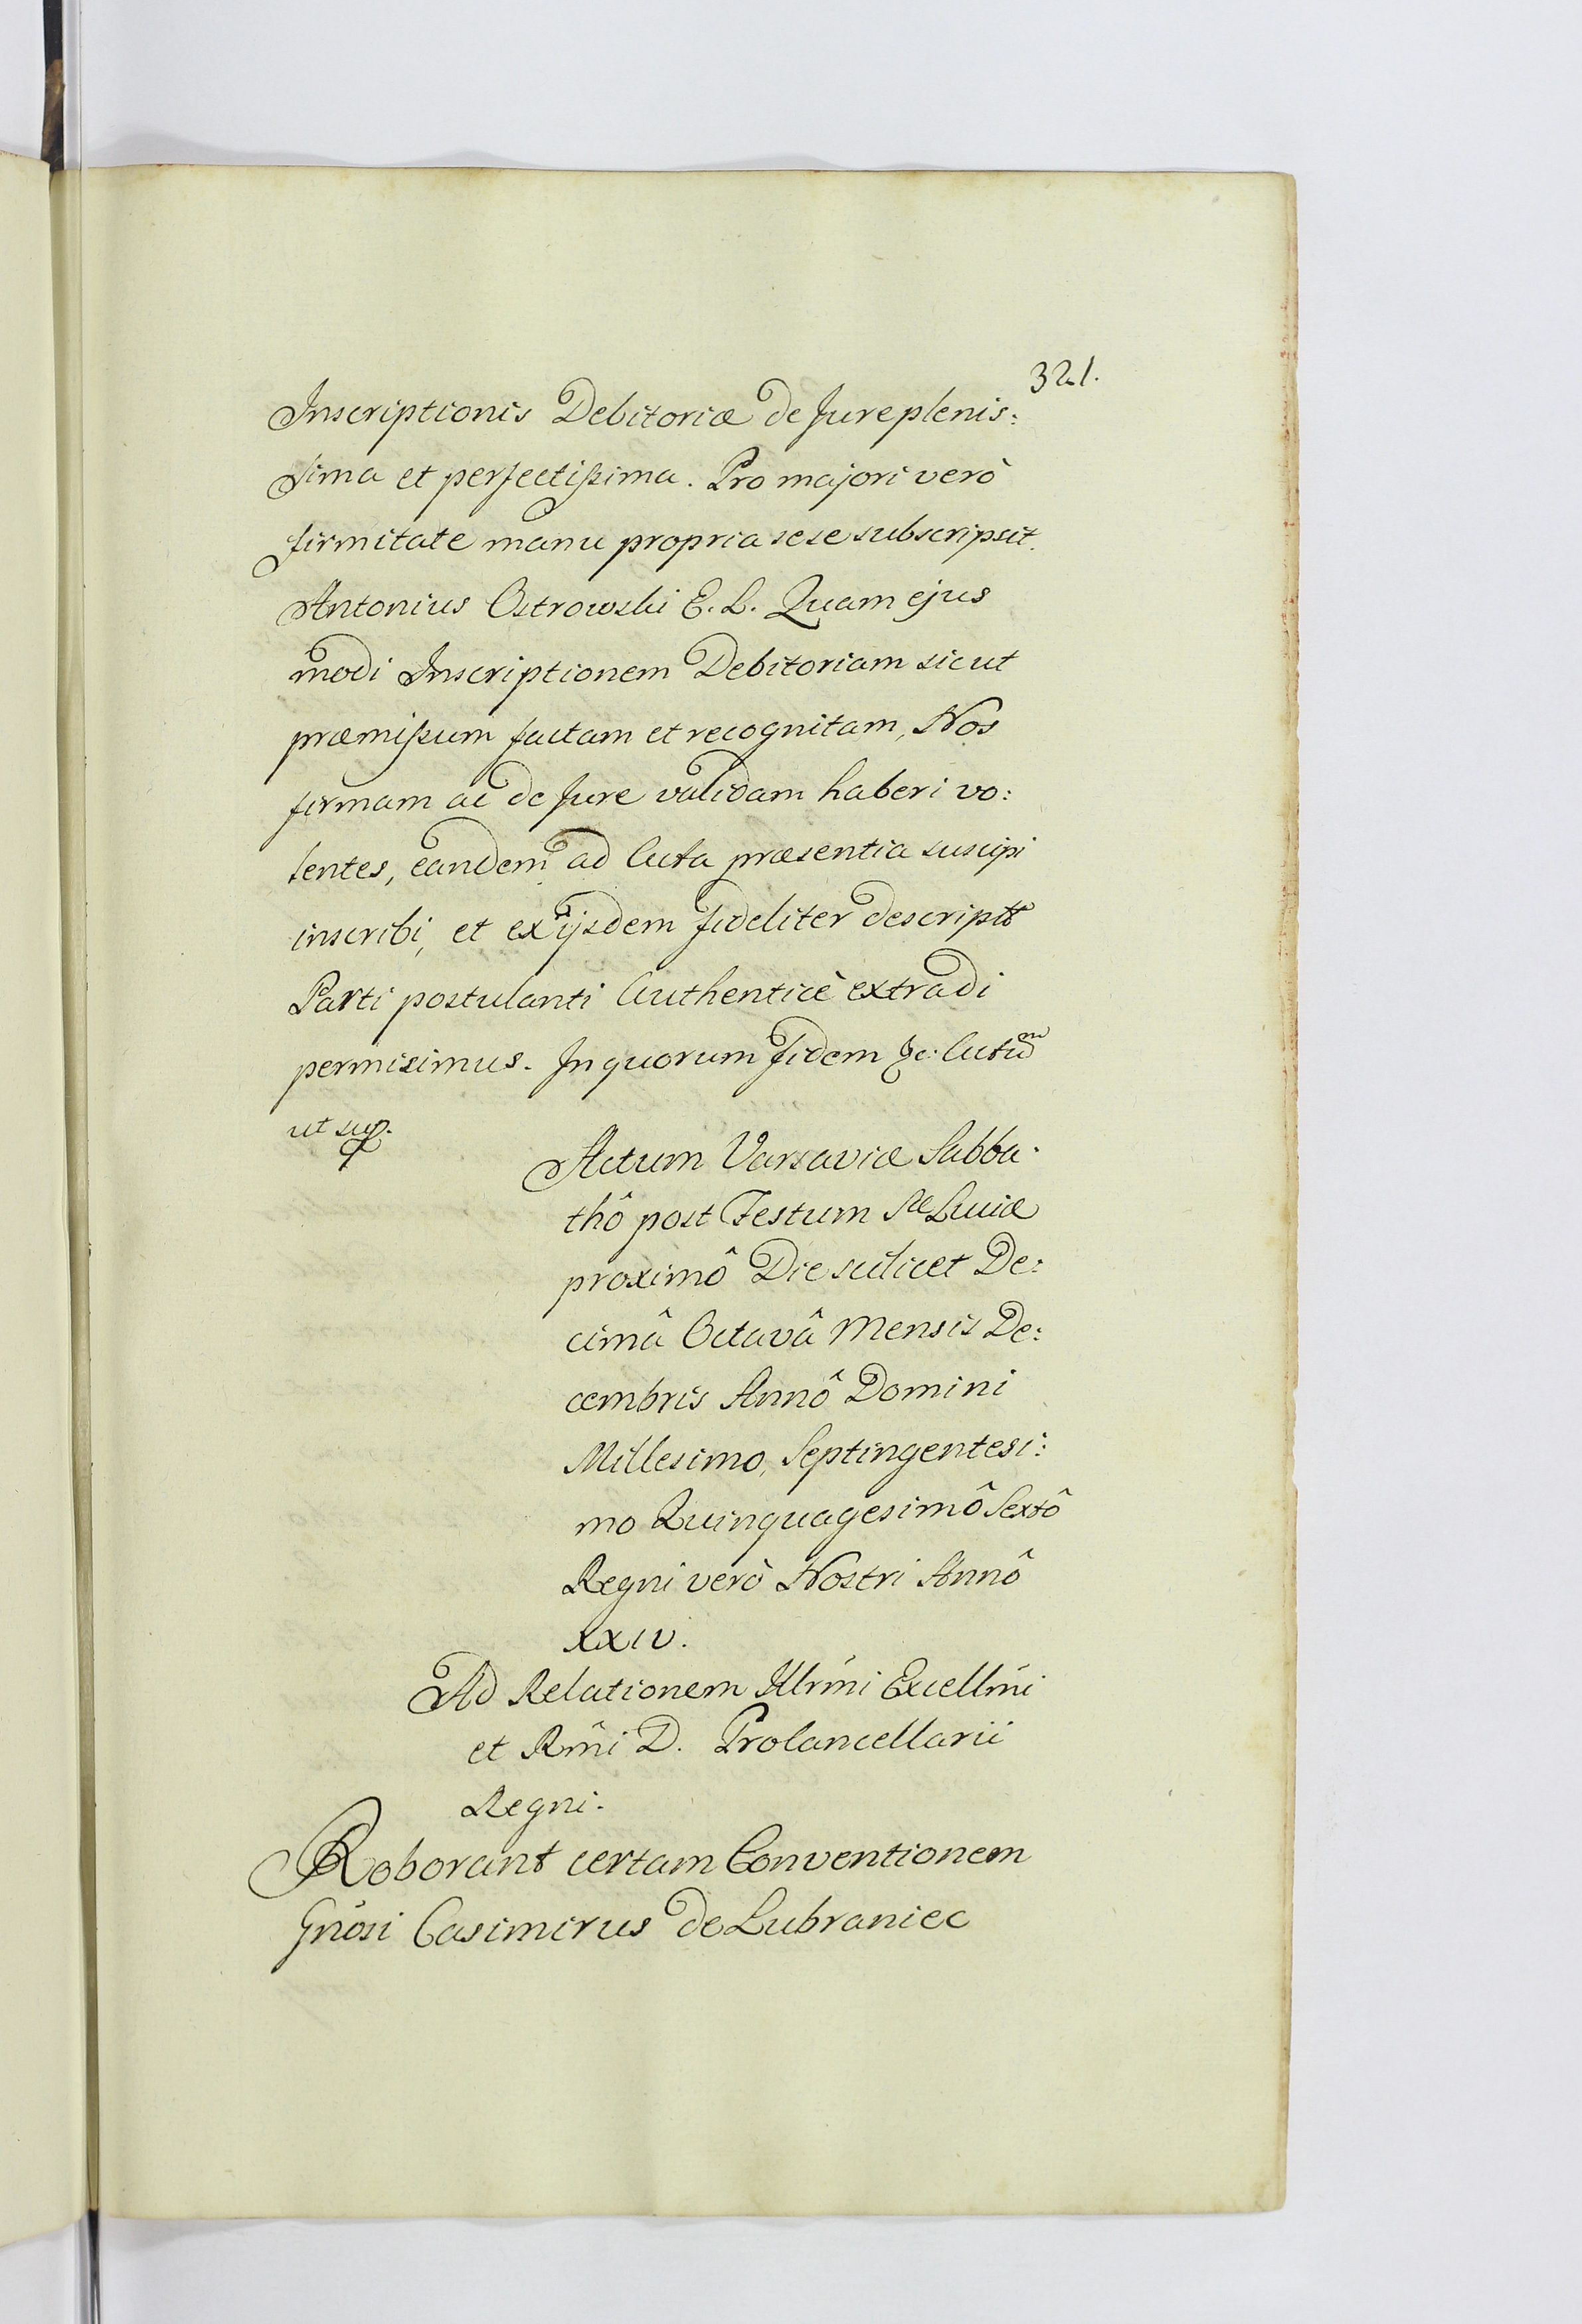 321.
Inscriptionis Debitoriæ de Jure plenis:
sima et perfectißima. Pro majori verò
firmitate manu propria sese subscripsit.
Antonius Ostrowski E. L. Quam ejus
modi Inscriptionem Debitoriam sicut
præmißum factam et recognitam, Nos
firmam ac de Jure validam haberi vo:
lentes, eandem ad Acta præsentia suscipi
inscribi, et ex ijsdem fideliter descriptã
Parti postulanti Authenticè extradi
permisimus. In quorum Fidem &c: Actũm
ut sup.
Actum Varsaviæ Sabba:
thô post Festum Sæ Luciæ
proximô Die scilicet De:
cimâ Octavâ Mensis De:
cembris Annô Domini
Millesimo, Septingentesi:
mo Quinquagesimô Sextô
Regni verò Nostri Annô
XXIV.
Ad Relationem Illrm̃i Excellm̃i
et Rm̃i D. Procancellarii
Regni.
Roborant certam Conventionem
Gñosi Casimirus de Lubraniec